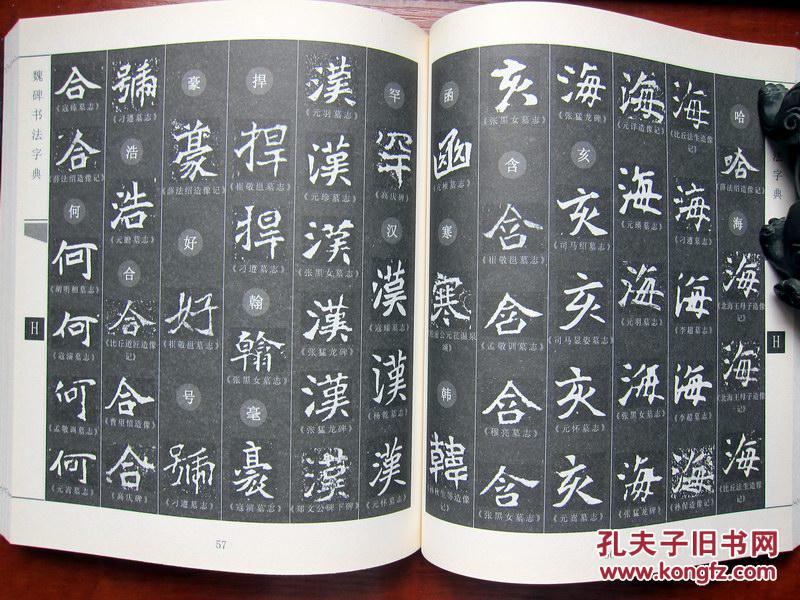 哈
哈
《薛法绍造像记》
海
海
《北海王母子造像记》
海
《北海王母子造像记》
海
《比丘法生造像记》
海
《比丘法生造像记》
海
《刁遵墓志》
海
《李超墓志》
海
《李超墓志》
海
《孙保造像记》
海
《元详造像记》
海
海
《元羽墓志》
海
《张黑女墓志》
海
《张猛龙碑》
海
《张猛龙碑》
亥
亥
《司马绍墓志》
亥
《司马显姿墓志》
亥
《元怀墓志》
亥
《元嵩墓志》
亥
《张黑女墓志》
含
含
《崔敬邕墓志》
含
《孟敬训墓志》
含
《穆亮墓志》
含
《张黑女墓志》
函
函
寒
寒
韩
韓
H
法字典
罕
罕
《高庆碑》
汉
漢
《寇臻墓志》
漢
《杨乾墓志》
漢
《元怀墓志》
漢
《元羽墓志》
漢
《元珍墓志》
漢
《张黑女墓志》
漢
《张猛龙碑》
漢
《张猛龙碑》
漢
《郑文公碑下碑》
捍
捍
《崔敬邕墓志》
捍
《刁遵墓志》
翰
翰
《张黑女墓志》
毫
毫
《寇演墓志》
豪
豪
《薛法绍造像记》
好
好
《崔敬邕墓志》
号
號
《刁遵墓志》
號
《刁遵墓志》
浩
浩
《元瞻墓志》
合
合
《比丘道匠造像记》
合
《曹望憘造像》
合
《高庆碑》
合
《寇臻墓志》
合
《薛法绍造像记》
何
何
何
《寇演墓志》
何
《孟敬训墓志》
何
《元嵩墓志》
魏碑书法字典
H
57
孔夫子旧书网
www.kongfz.com